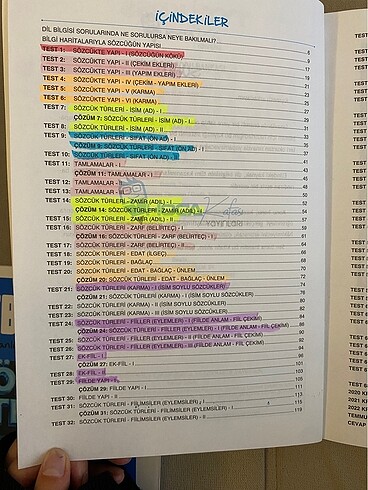 İÇİNDEKİLER
DİL BİLGİSİ SORULARINDA NE SORULURSA NEYE BAKILMALI?
BİLGİ HARİTALARIYLA SÖZCÜĞÜN YAPISI 6
TEST 1: SÖZCÜKTE YAPI - I (SÖZCÜĞÜN KÖKÜ) 9
TEST 2: SÖZCÜKTE YAPI - II (ÇEKİM EKLERİ) 17
TEST 3: SÖZCÜKTE YAPI - III (YAPIM EKLERİ) 19
TEST 4: SÖZCÜKTE YAPI - IV (ÇEKİM - YAPIM EKLERİ) 21
TEST 5: SÖZCÜKTE YAPI - V (KARMA) 23
TEST 6: SÖZCÜKTE YAPI - VI (KARMA) 25
TEST 7: SÖZCÜK TÜRLERİ - İSİM (AD) - I
ÇÖZÜM 7: SÖZCÜK TÜRLERİ - İSİM (AD) - I 29
TEST 8: SÖZCÜK TÜRLERİ - İSİM (AD) - II 31
TEST 9: SÖZCÜK TÜRLERİ - SIFAT (ÖN AD) - I
ÇÖZÜM 9: SÖZCÜK TÜRLERİ - SIFAT (ÖN AD) - I 35
TEST 10: SÖZCÜK TÜRLERİ - SIFAT (ÖN AD)
TEST 11: TAMLAMALAR - I
ÇÖZÜM 11: TAMLAMALAR - I
TEST 12: TAMLAMALAR
TEST 13: TAMLAMALAR
TEST 14: SÖZCÜK TÜRLERİ - ZAMİR (ADIL) - I 52
ÇÖZÜM 14: SÖZCÜK TÜRLERİ - ZAMİR (ADIL) - I 54
TEST 15: SÖZCÜK TÜRLERİ - ZAMİR (ADIL) - II 57
TEST 16: SÖZCÜK TÜRLERİ - ZARF (BELİRTEÇ) - I 59
ÇÖZÜM 16: SÖZCÜK TÜRLERİ - ZARF (BELİRTEÇ) - I
TEST 17: SÖZCÜK TÜRLERİ - ZARF (BELİRTEÇ) - II
TEST 18: SÖZCÜK TÜRLERİ - EDAT (İLGEÇ)
TEST 19: SÖZCÜK TÜRLERİ - BAĞLAÇ
TEST 20: SÖZCÜK TÜRLERİ - EDAT - BAĞLAÇ - ÜNLEM
ÇÖZÜM 20: SÖZCÜK TÜRLERİ - EDAT - BAĞLAÇ - ÜNLEM 72
TEST 21: SÖZCÜK TÜRLERİ (KARMA) - I (İSİM SOYLU SÖZCÜKLER) 74
ÇÖZÜM 21: SÖZCÜK TÜRLERİ (KARMA) - I (İSİM SOYLU SÖZCÜKLER) 76
TEST 22: SÖZCÜK TÜRLERİ (KARMA) - II (İSİM SOYLU SÖZCÜKLER)
TEST 23: SÖZCÜK TÜRLERİ (KARMA) - III (İSİM SOYLU SÖZCÜKLER) 82
TEST 24: SÖZCÜK TÜRLERİ - FİİLLER (EYLEMLER) - I (FİİLDE ANLAM - FİİL ÇEKİMİ) 84
ÇÖZÜM 24: SÖZCÜK TÜRLERİ - FİİLLER (EYLEMLER) - I (FİİLDE ANLAM - FİİL ÇEKİMİ) 86
TEST 25: SÖZCÜK TÜRLERİ - FİİLLER (EYLEMLER) - II (FİİLDE ANLAM - FİİL ÇEKİM) 90
TEST 26: SÖZCÜK TÜRLERİ - FİİLLER (EYLEMLER) - III (FİİLDE ANLAM - FİİL ÇEKİM) 92
TEST 27: EK-FİİL - I 94
ÇÖZÜM 27: EK-FİİL - I
TEST 28: EK-FİİL - II 100
TEST 29: FİİLDE YAPI - I 103
ÇÖZÜM 29: FİİLDE YAPI - I
TEST 30: FİİLDE YAPI - II 111
TEST 31: SÖZCÜK TÜRLERİ - FİİLİMSİLER (EYLEMSİLER) - I 113
ÇÖZÜM 31: SÖZCÜK TÜRLERİ - FİİLİMSİLER (EYLEMSİLER) - I 115
TEST 32: SÖZCÜK TÜRLERİ - FİİLİMSİLER (EYLEMSİLER) - II 119